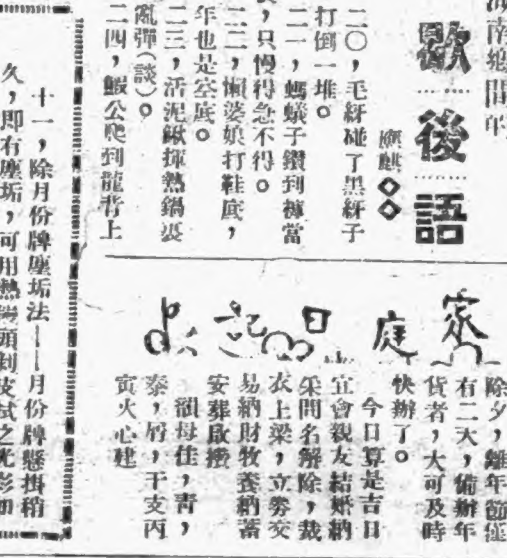 南 間的
歇後語
麒◇◇
二〇,毛蚜碰了黑蚜子
打倒一堆。
二一,螞蟻子鑽到褲當
,只慢得急不得。
二二,懶婆娘打鞋底,
年也是空底。
二三,活泥鰍揮熱鍋裏
亂彈(談)。
二四,鰕公爬到龍背上
家庭日記
除夕,離年節僅
有二天,備辦年
貨者,大可及時
快辦了。
今日算是吉日
宜會親友結婚納
采問名解除,裁
衣上梁,立券交
易納財牧養納畜
安葬啟攢
母佳,青,
泰,屑,干支丙
寅火心建
十一,除月份牌塵垢法——月份牌懸掛稍
久,即有塵垢,可用熱饅頭剝皮拭之光彩如